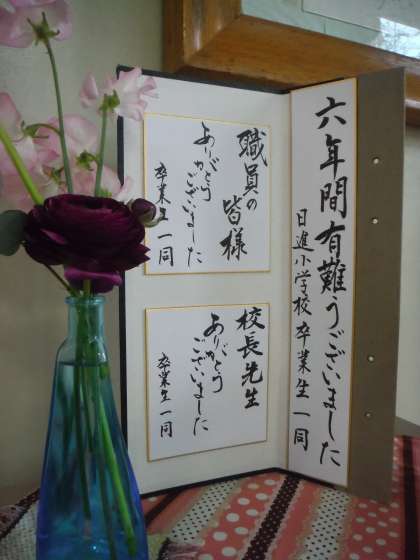 六年間有難うございました
日進小学校 卒業生 一同
職員の
皆様
ありがとう
ございました
卒業生 一同
校長先生
ありがとう
ございました
卒業生 一同